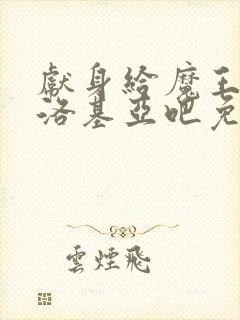 獻身給魔王
洛基亞吧免
雲煙飛